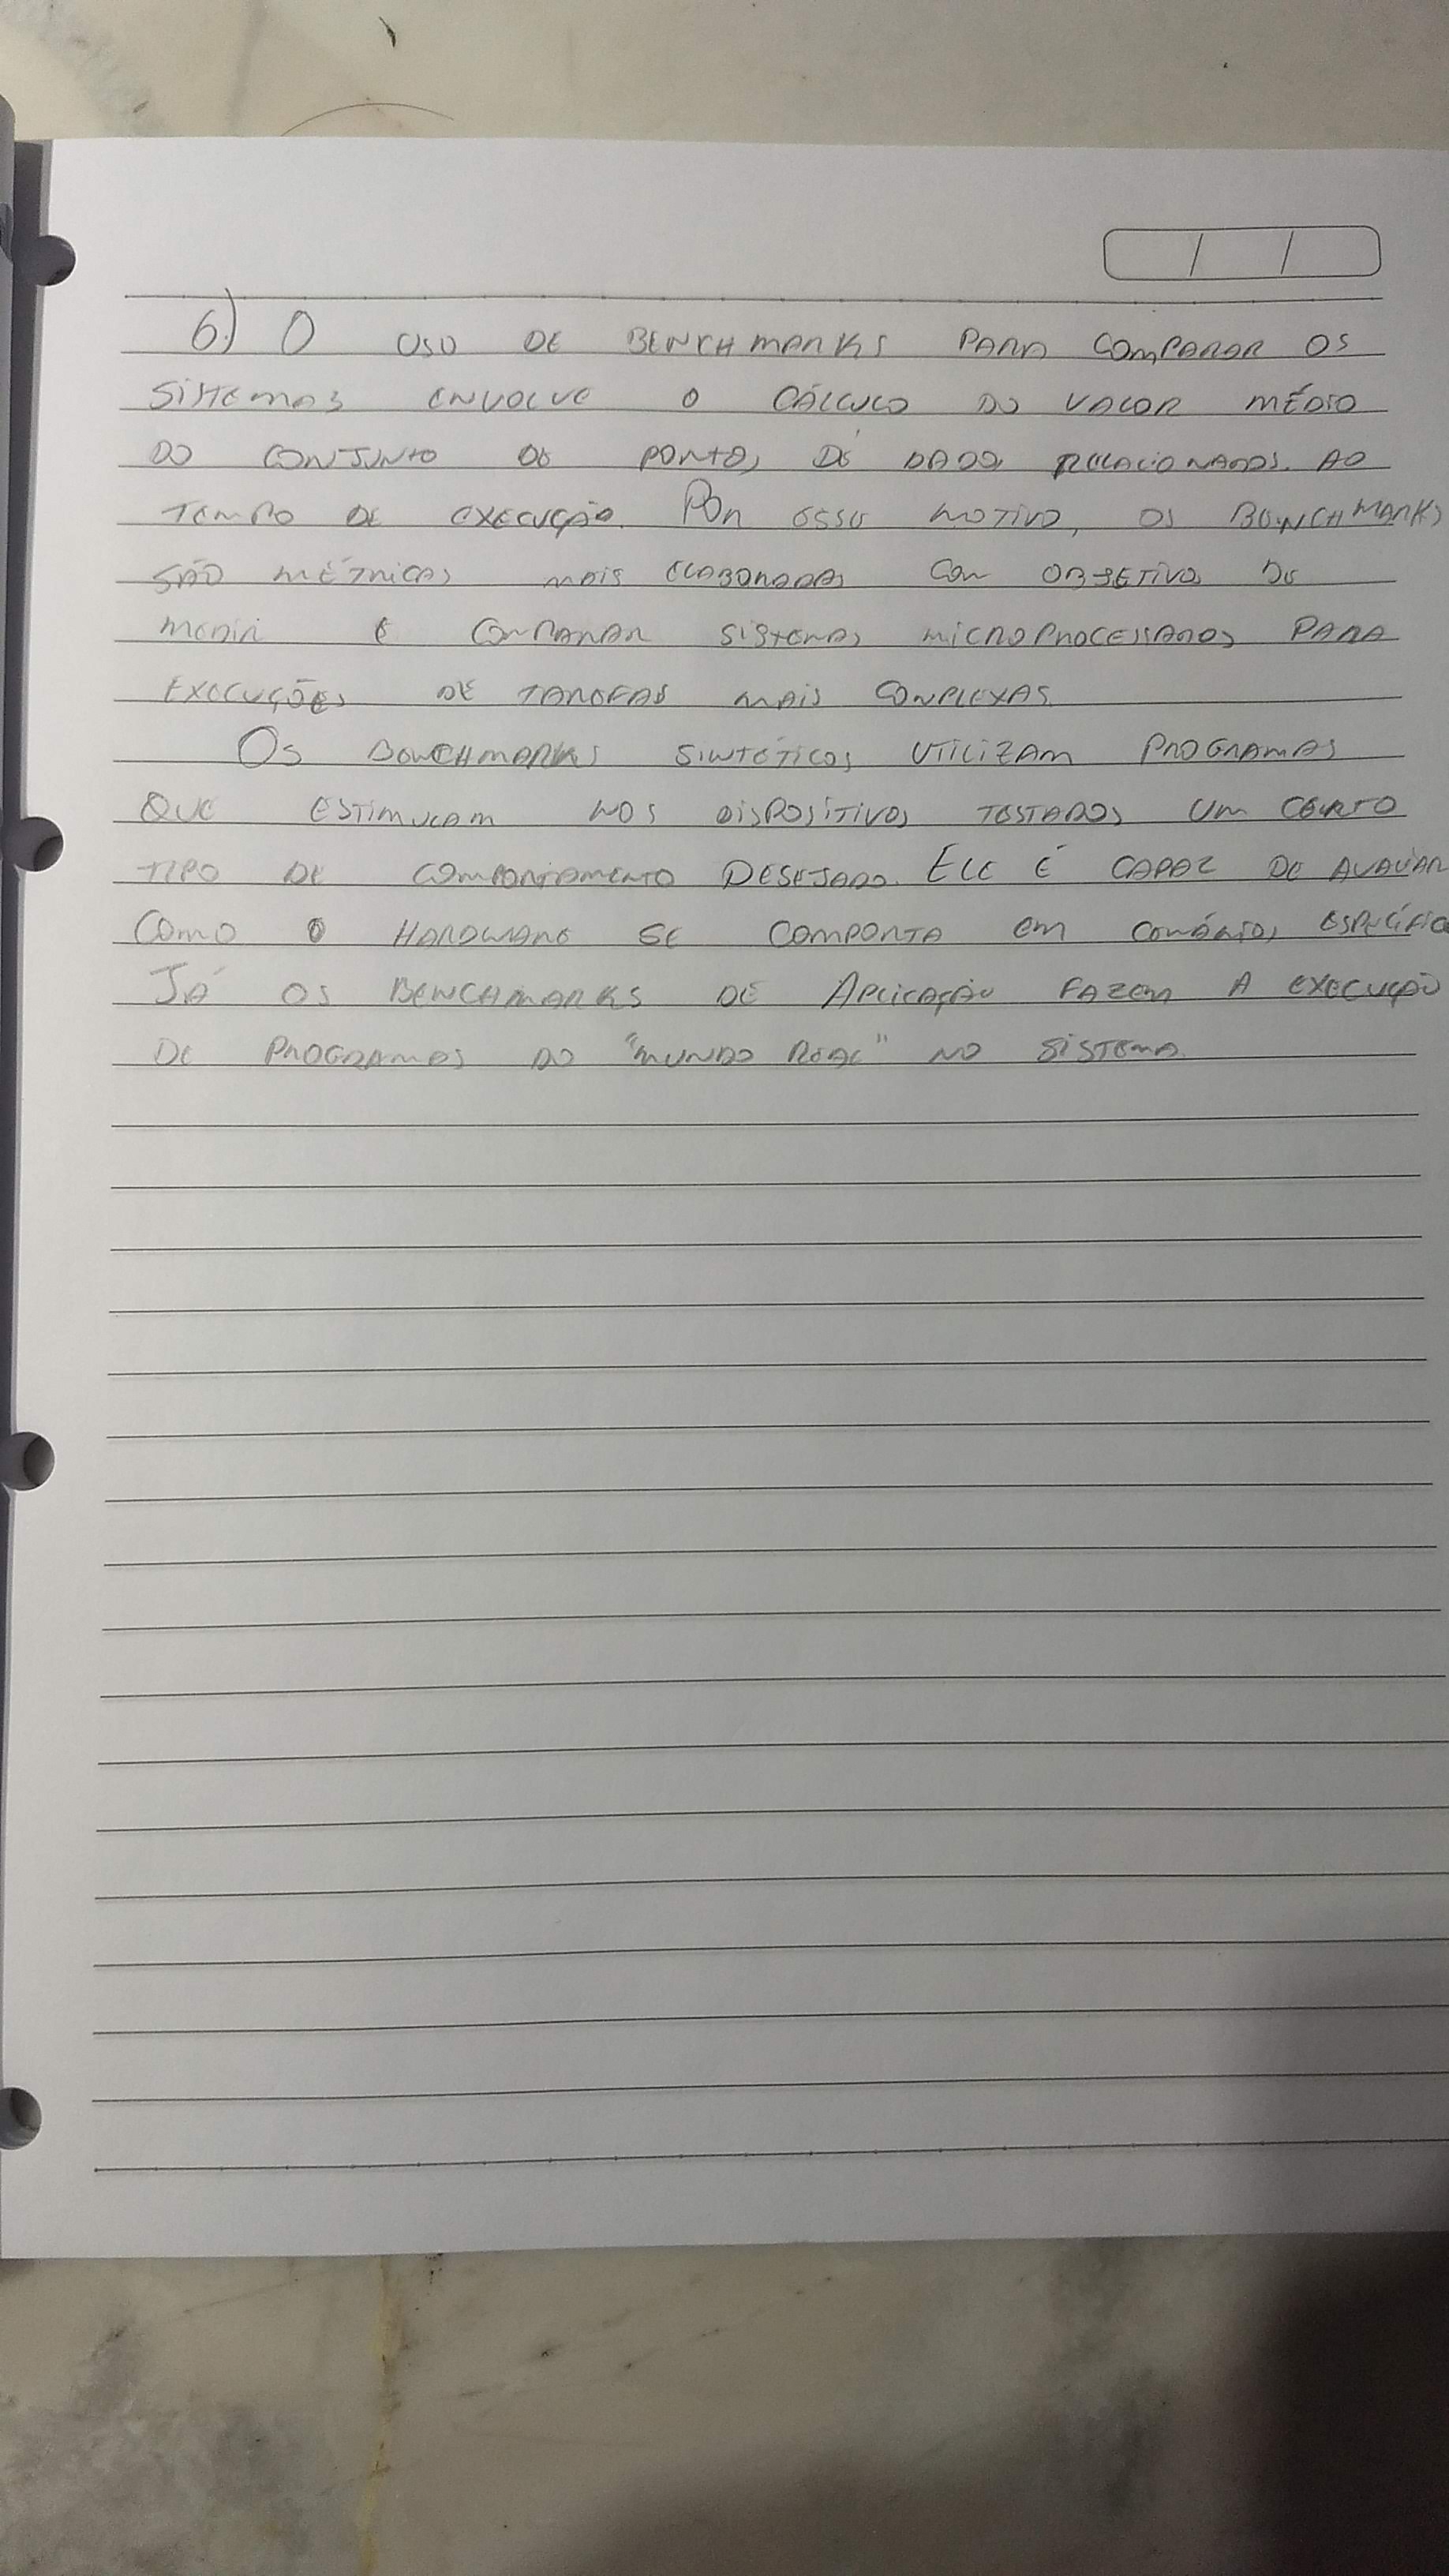 6.) O USO DE BENCHMARKS PARA COMPARAR OS
SISTEMAS ENVOLVE O CÁLCULO DO VALOR MÉDIO
DO CONJUNTO DE PONTOS DE DADOS RELACIONADOS AO
TEMPO DE EXECUÇÃO. POR ESSE MOTIVO, OS BENCHMARKS
SÃO MÉTRICAS MAIS ELABORADAS COM OBJETIVO DE
MEDIR E COMPARAR SISTEMAS MICROPROCESSADOS PARA
EXECUÇÕES DE TAREFAS MAIS COMPLEXAS.
OS BENCHMARKS SINTÉTICOS UTILIZAM PROGRAMAS
QUE ESTIMULAM NOS DISPOSITIVOS TESTADOS UM CERTO
TIPO DE COMPORTAMENTO DESEJADO. ELE É CAPAZ DE AVALIAR
COMO O HARDWARE SE COMPORTA EM CENÁRIOS
JÁ OS BENCHMARKS DE APLICAÇÃO FAZEM A EXECUÇÃO
DE PROGRAMAS DO "MUNDO REAL" NO SISTEMA.